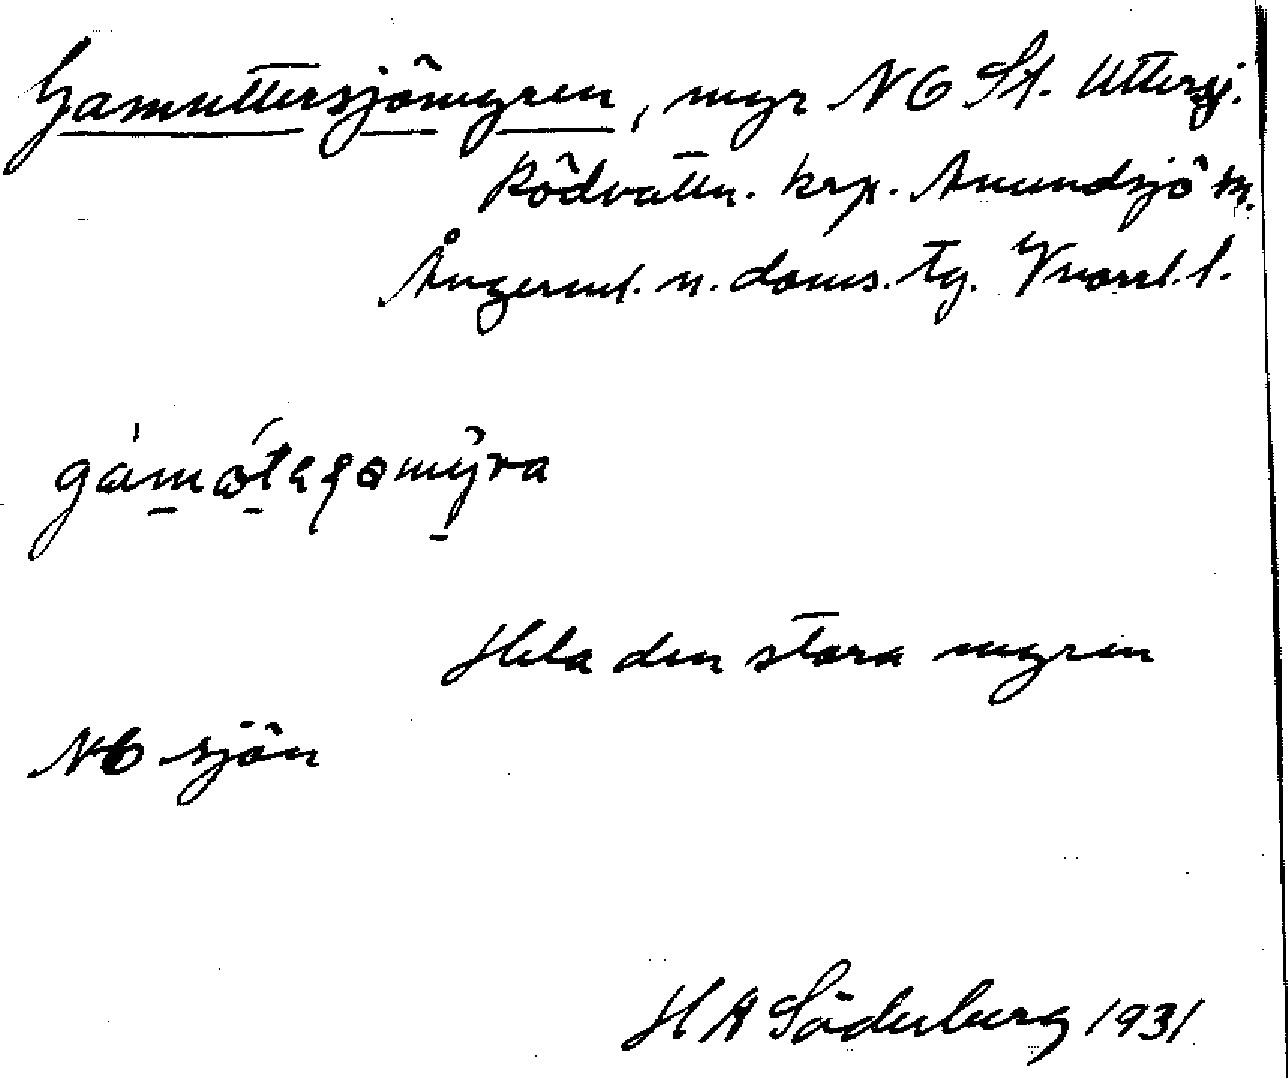 Gamuttersjömyren, myr NO St. Uttersj.
Rödvattn. krp. Anundsjö sn.
Ångerml. n. doms. tg. Vnorrl. l.
gámótaʂømýra
Hela den stora myren
NO sjön
H A Söderberg 1931